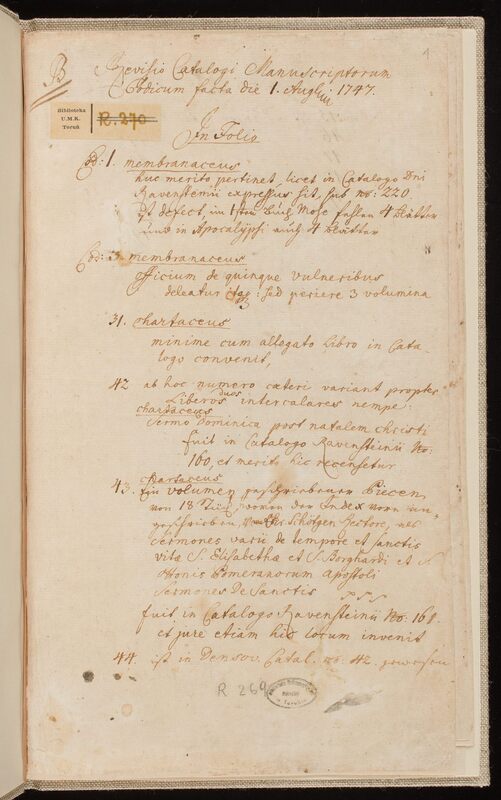 B
4
Revisio Catalogi Manuscriptorum
Codicum facta die 1. Aug 1747.
Biblioteka
U.M.K.
Toruń
R. 270
In Folio
Cod: 1. membranaceus
huc merito pertinet, licet in Catalogo Dni
Ravensteinii expressus sit, sub no: 220
ist defect, im 1sten Buch Mose fehlen 4 Blätter
und in Apocalypsi auch 4 Blätter
Cod: 3. membranaceus
officium de quinque vulneribus
deleatur : sed periere 3 volumina
31. chartaceus
minime cum allegato Libro in Cata-
logo convenit,
42 ab hoc numero cæteri variant propter
Liberos duos intercalares nempe.
chartaceus
Sermo Dominica post natalem christi
fuit in Catalogo Ravensteinii No:
160, et merito hic recensetur
chartaceus
43. Ein volumen geschriebener Piecen,
von 18 woran der Index vorn an-
geschrieben, Schöfgen Rectore, als
Sermones varii de tempore et sanctis
vita S. Elisabethæ et S. Borghardi et S.
Ottonis Pomeranorum Apostoli
Sermones De Sanctis
fuit in Catalogo Ravensteinii No. 161.
et jure etiam hic locum invenit
44. ist in Catal. no. 42. gewesen
R 269